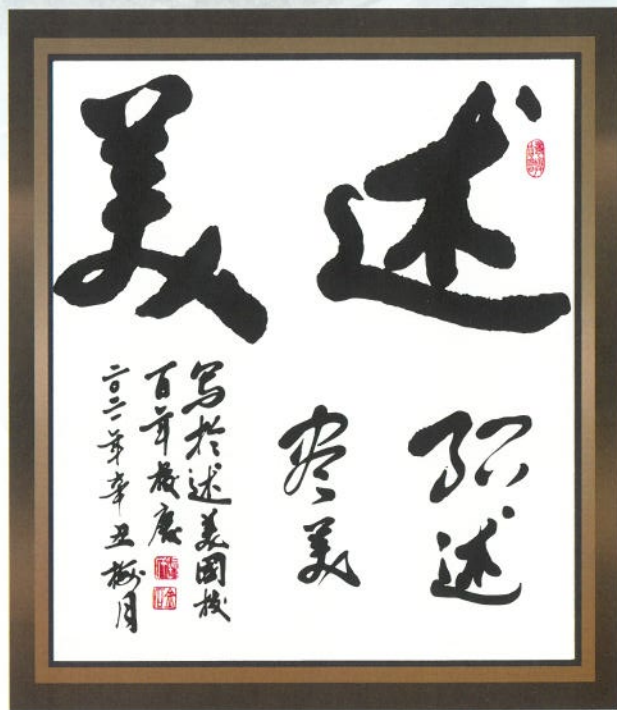 述美
弘述
尽美
写於述美国校
百年校庆
二〇二一年辛丑梅月